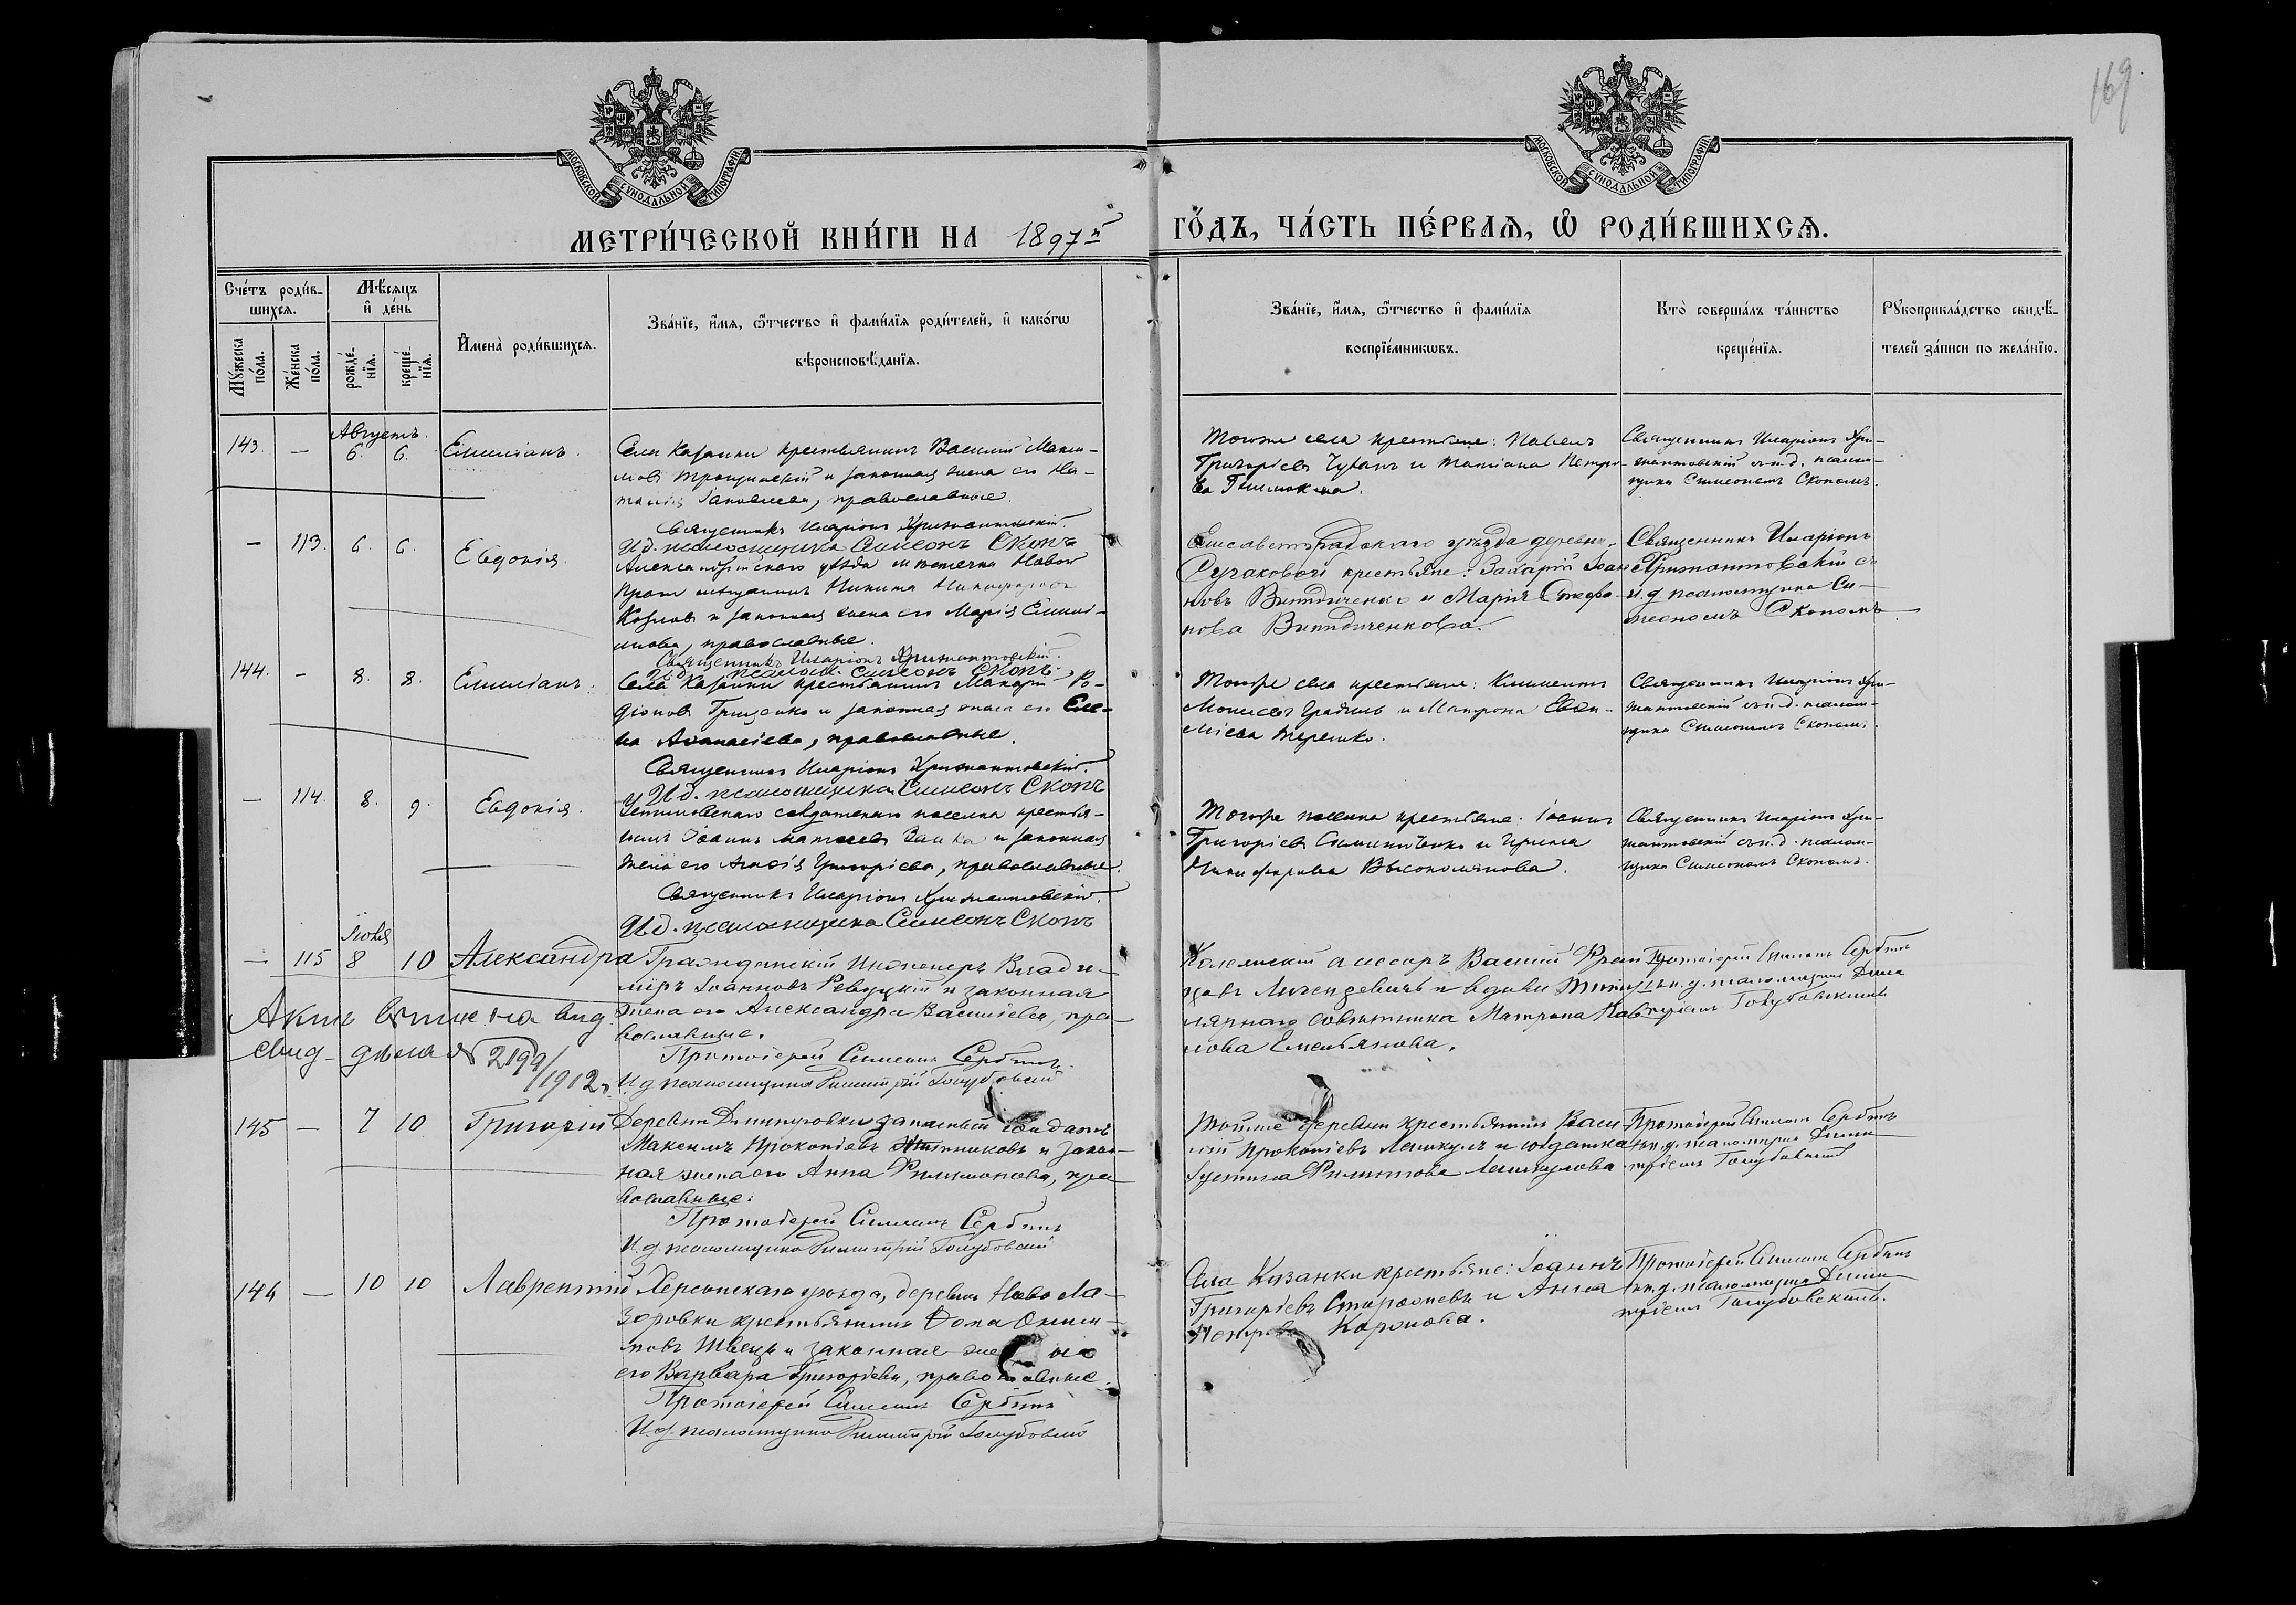 169.
МОСКОВСКОЙ СѴНОДАЛЬНОЙ ТИПОГРАФІИ
МОСКОВСКОЙ СѴНОДАЛЬНОЙ ТИПОГРАФІИ
МЕТРИ́ЧЕСКОЙ КНИ́ГИ НА 1897й ГО́ДЪ, ЧА́СТЬ ПЕ́РВАѦ, Ѡ҆ РОДИ́ВШИХСѦ.
Сче́тъ роди́в-
шихсѧ.
Мꙋ́жеска по́ла.
Же́нска по́ла.
Мѣ́сѧцъ
и҆ де́нь
рожде́-
нїѧ.
креще́-
нїѧ.
И҆мена̀ роди́вшихсѧ.
Зва́нїе, и҆́мѧ, ѻ҆́тчество и҆ фами́лїѧ роди́телей, и҆ како́гѡ
вѣроисповѣ́данїѧ.
Зва́нїе, и҆́мѧ, ѻ҆́тчество и҆ фами́лїѧ
воспрїе́мникѡвъ.
Кто̀ соверша́лъ та́инство
креще́нїѧ.
Рꙋкоприкла́дство свидѣ́-
телей за́писи по жела́нїю.
143. — Августъ. 6. 6. Емиліанъ.
Села Казанки крестьянинъ Василій Макси-
мовъ и законная жена его На-
талія Іаковлева, православные.
Священникъ Иларіонъ Хрисантовскій.
И.д. псаломщика Симеонъ Скопъ
Тогоже села крестьяне: Павелъ
Григорьевъ и Татіана Петро-
ва
Священникъ Иларіонъ Хри-
сантовскій съ и.д. псалом-
щика Симеономъ Скопомъ.
— 113. 6. 6. Евдокія.
Александрійскаго уѣзда мѣстечка Новой
Праги мѣщанинъ Никита Никифоровъ
Козловъ и законная жена его Марія Емилі-
анова, православные.
Священникъ Иларіонъ Хрисантовскій.
И.д. псалом. Симеонъ Скопъ.
Елисаветградскаго уѣзда деревни
крестьяне: Захарій Іоан-
новъ и Марія Стефа-
нова
Священникъ Иларіонъ
Хрисантовскій съ
и.д. псаломщика Си-
меономъ Скопомъ.
144. — 8. 8. Емиліанъ.
Села Казанки крестьянинъ Макарій Ро-
діоновъ Грищенко и законная жена его Еле-
на Аѳанасіева, православные.
Священникъ Иларіонъ Хрисантовскій.
И.д. псаломщика Симеонъ Скопъ
Тогоже села крестьяне: Климентъ
Моисеевъ и Матрона Евѳи-
міева Терешко.
Священникъ Иларіонъ Хри-
сантовскій съ и.д. псалом-
щика Симеономъ Скопомъ.
— 114. 8. 9. Евдокія.
солдатскаго поселка крестья-
нинъ Іоаннъ Матѳеевъ Заика и законная
жена его Агаѳія Григорьева, православные.
Священникъ Иларіонъ Хрисантовскій.
И.д. псаломщика Симеонъ Скопъ
Тогоже поселка крестьяне: Іоаннъ
Григорьевъ и Ирина
Никифорова
Священникъ Иларіонъ Хри-
сантовскій съ и.д. псалом-
щика Симеономъ Скопомъ.
— 115 8 10 Александра
Гражданскій Инженеръ Влади-
міръ Іоанновъ Ревуцкій и законная
жена его Александра Василіева, пра-
вославные.
Протоіерей Симеонъ Сербинъ
И.д. псаломщика Димитрій Голубовскій
Актъ на вид.
свид. дѣла № 2199/1912 г.
Коллежскій ассесоръ Василій
и вдова титу-
лярнаго совѣтника Матрона Пав-
лова Емельянова.
Протоіерей Симеонъ Сербинъ
съ и.д. псаломщика Дими-
тріемъ Голубовскимъ
145 — 7 10 Григорій
Деревни Дмитровки запасный солдатъ
Максимъ Прокопіевъ и закон-
ная жена его Анна Филимонова, пра-
вославные.
Протоіерей Симеонъ Сербинъ
И.д. псаломщика Димитрій Голубовскій
Тойже деревни крестьянинъ Васи-
лій Прокопіевъ и солдатка
Іустина Филиппова
Протоіерей Симеонъ Сербинъ
съ и.д. псаломщика Дими-
тріемъ Голубовскимъ
146 — 10 10 Лаврентій
Херсонскаго уѣзда, деревни Ново-Ла-
заровки крестьянинъ Ѳома Ониси-
мовъ Швецъ и законная жена
его Варвара Григорьева, православные.
Протоіерей Симеонъ Сербинъ
И.д. псаломщика Димитрій Голубовскій
Села Казанки крестьяне: Іоаннъ
Григорьевъ и Анна
Петрова
Протоіерей Симеонъ Сербинъ
съ и.д. псаломщика Дими-
тріемъ Голубовскимъ.